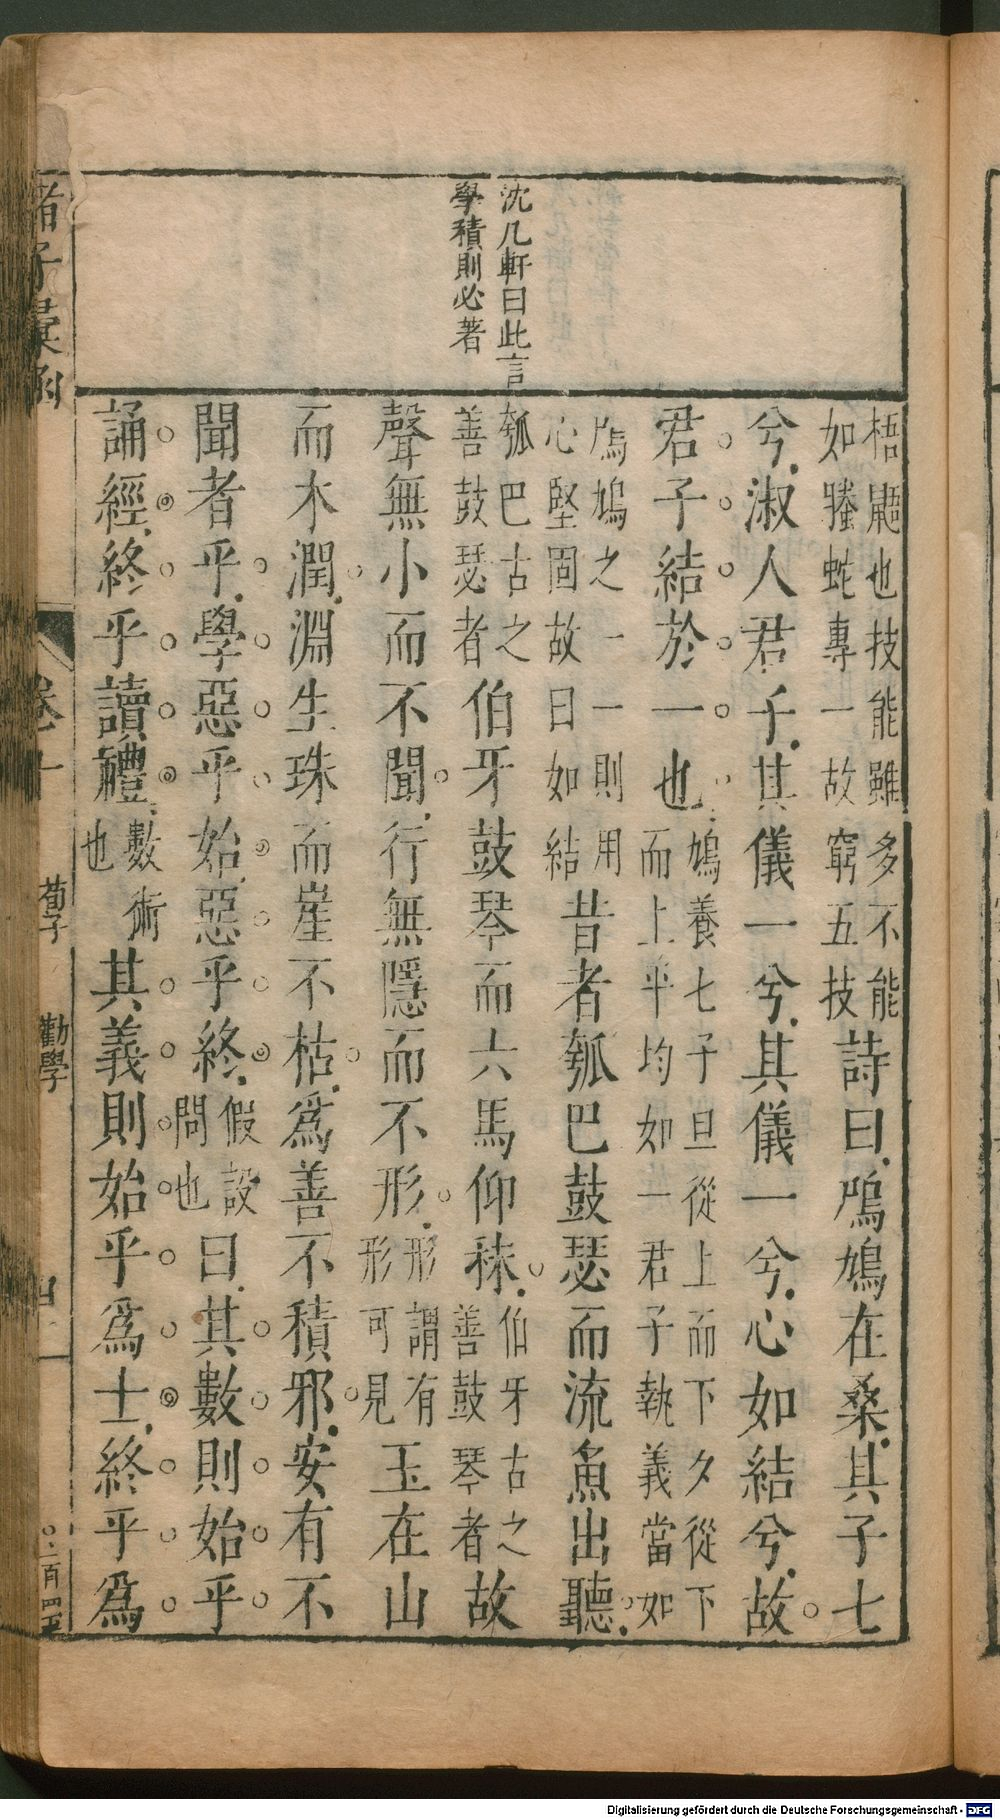 沈几軒曰此言
學積則必著
梧鼯也技能雖多不能如螣蛇專一故窮五技詩曰鳲鳩在桑其子七
兮淑人君子其儀一兮其儀一兮心如結兮故
君子結於一也鳩養七子旦從上而下夕從下而上平均如一君子執義當如
鳲鳩之一一則用心堅固故曰如結昔者瓠巴鼓瑟而流魚出聽
瓠巴古之善鼓瑟者伯牙鼓琴而六馬仰秣伯牙古之善鼓琴者故
聲無小而不聞行無隱而不形形謂有形可見玉在山
而木潤淵生珠而崖不枯爲善不積邪安有不
聞者乎學惡乎始惡乎終假設問也曰其數則始乎
誦經終乎讀禮數術也其義則始乎爲士終乎爲
諸子彙函 卷十 荀子 勸學
Digitalisierung gefördert durch die Deutsche Forschungsgemeinschaft - DFG